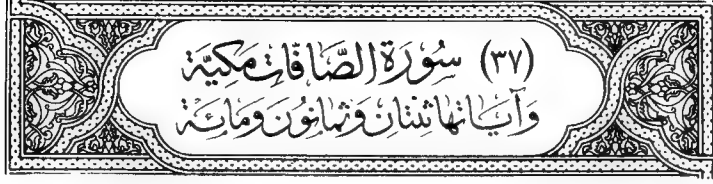 (٣٧) سُورَة الصَّافَّات مَكيَّة
وَآيَاتهَا ثِنْتَان وَثمانُون وَمائَة